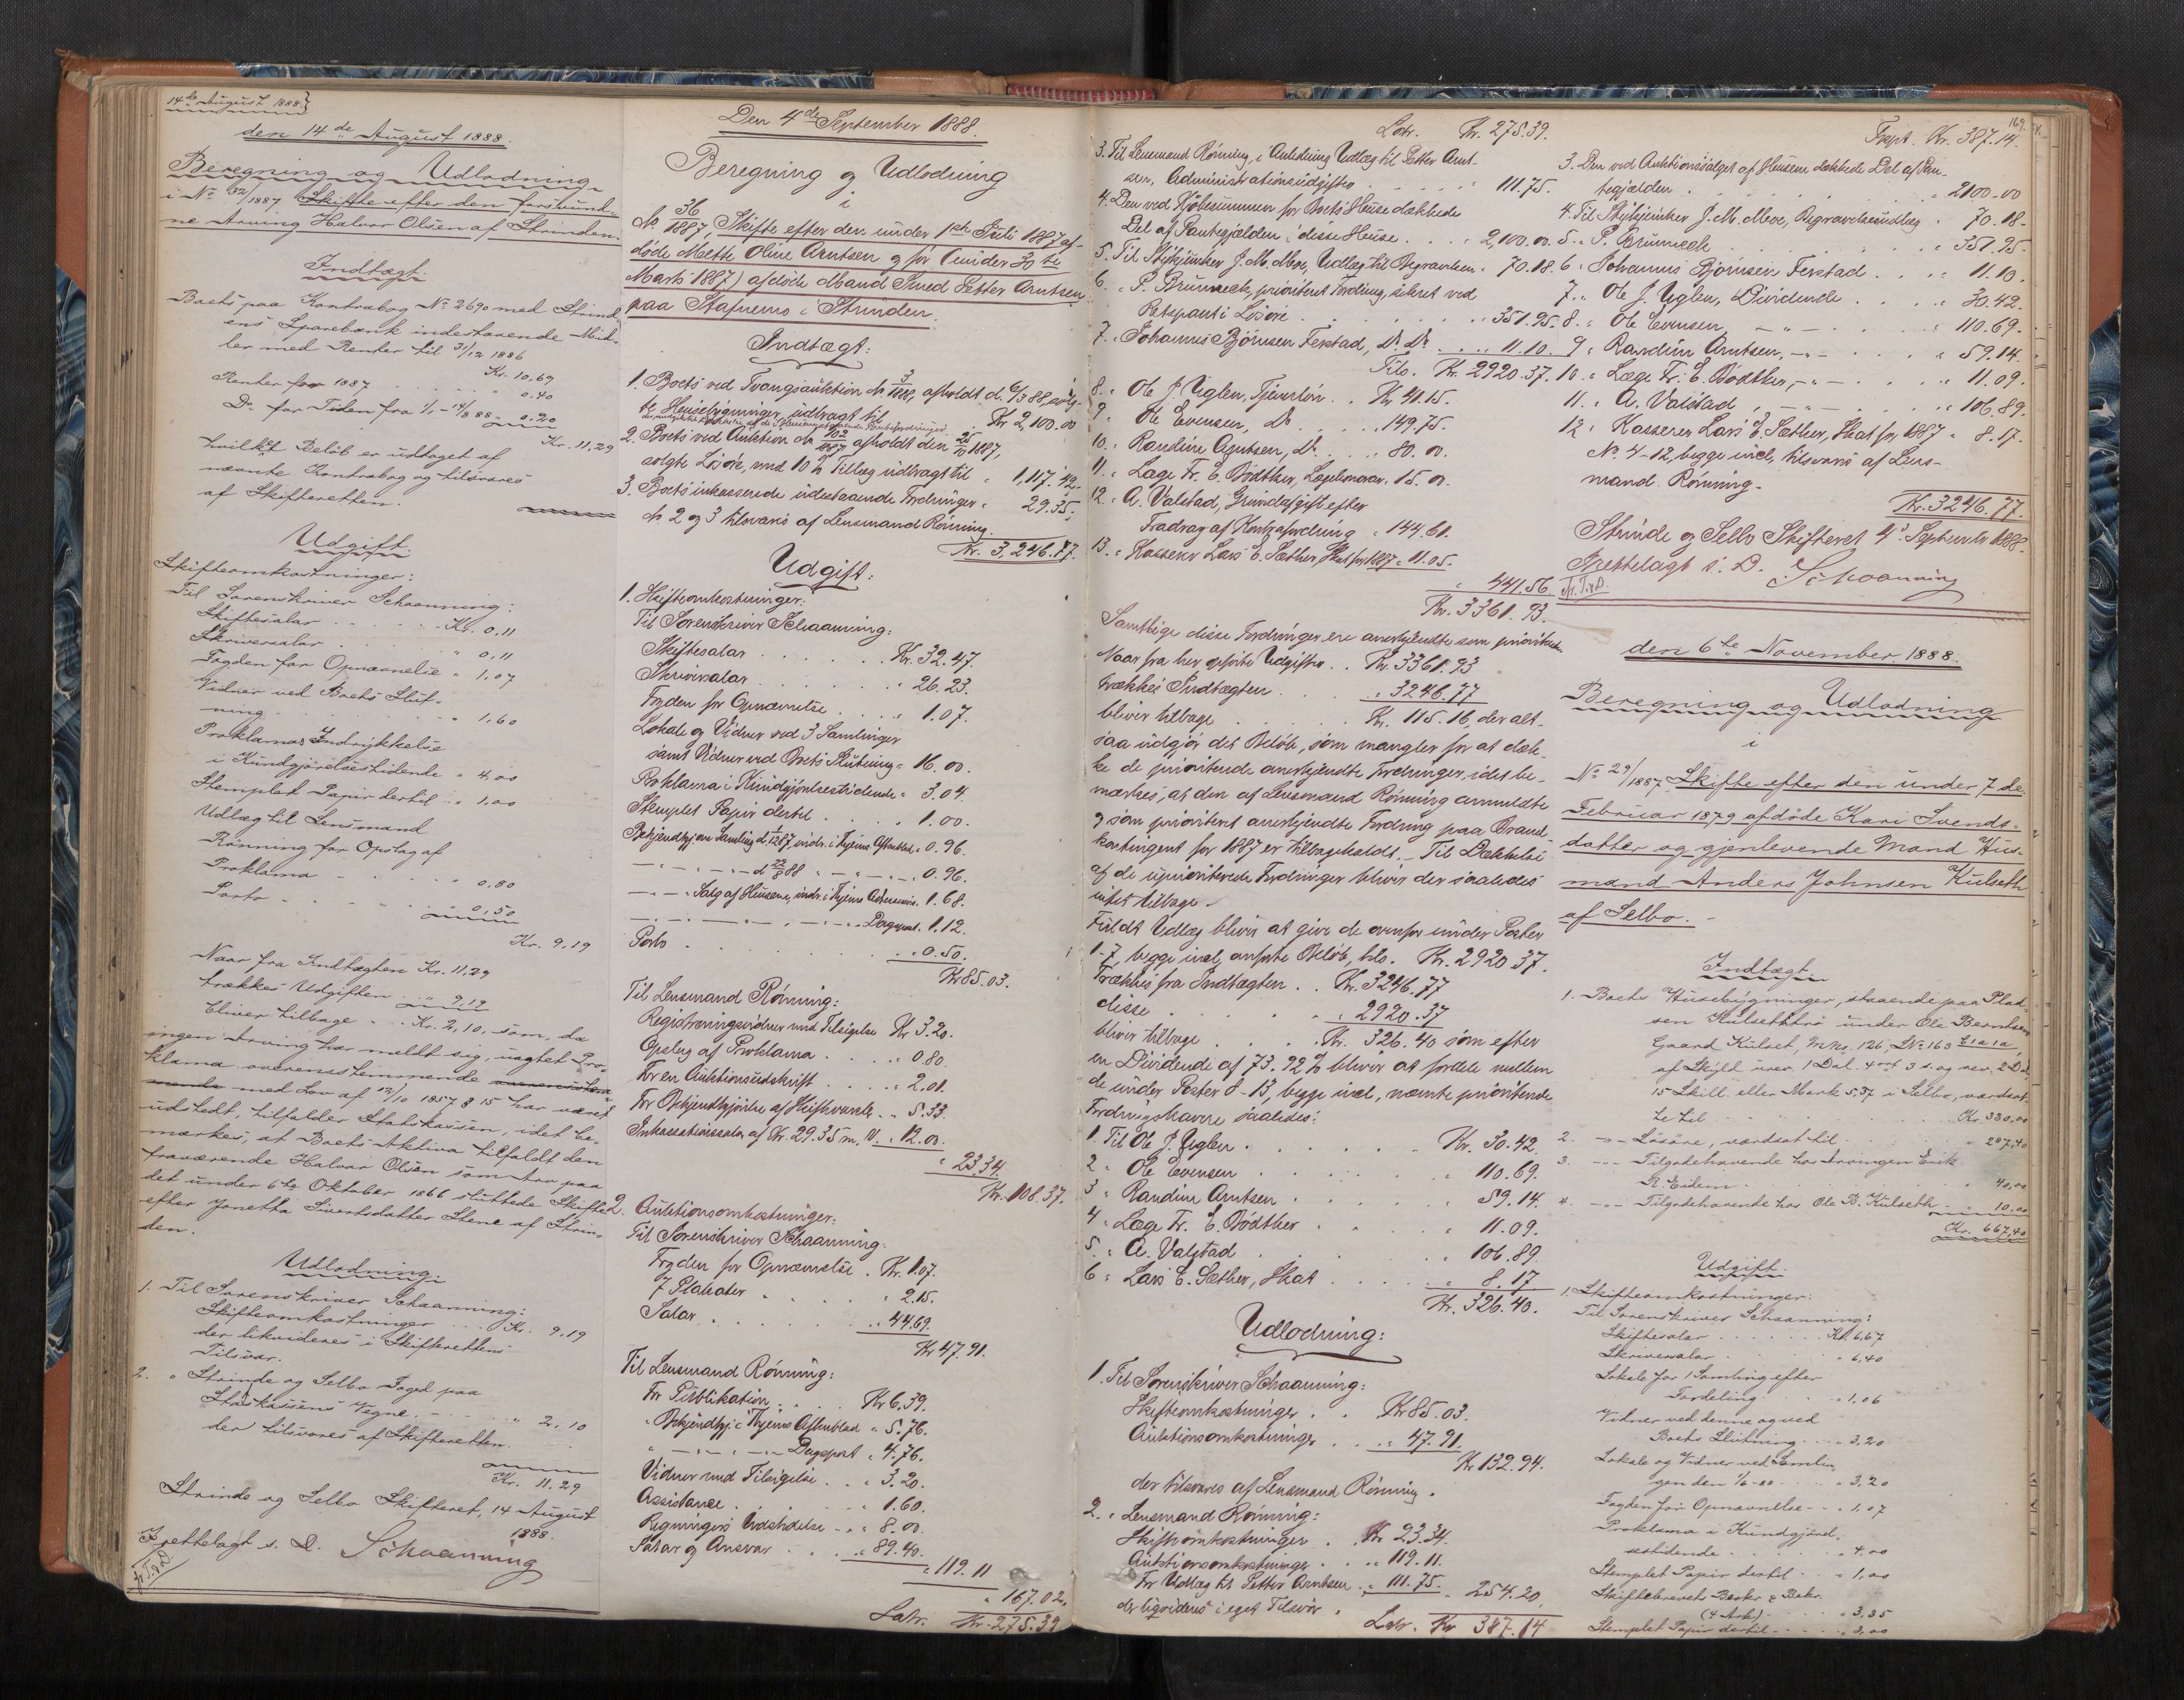 14de August 1888.
den 14de August 1888.
Beregning og Udlodning
i No 32/1887 Skifte efter den forsvund-
ne Arving Halvor Olsen af Strinden.
Indtægt.
Boets paa Kontrabog No 2690 med Strind-
ens Sparebank indestaaende Mid-
ler med Renter til 31/12 1886
Kr. 10,69
Renter for 1887 . . . . " 0.40
Do for Tiden fra 1/1 - 14/8 88 " 0.20
Kr. 11.29
hvilket Beløb er udtaget af
nævnte Kontrabog og tilsvares
af Skifteretten.
Udgift.
Skifteomkostninger:
Til Sorenskriver Schaanning:
Skiftesalar . . . . . Kr. 0,11
Skriversalar . . . . " 0,11
Fogden for Opnævnelse " 1,07
Vidner ved Boets Slut-
ning . . . . . " 1,60
Proklamas Indrykkelse
i Kundgjørelsestidende " 4,00
Stemplet Papir dertil . " 1,00
Udlæg til Lensmand
Rønning for Opslag af
Proklama . . . . " 0.80
Porto . . . . " 0,50
Kr. 9.19
Naar fra Indtægten Kr. 11,29
trækkes Udgiften . . " 9,19
bliver tilbage . . Kr. 2,10, som, da
ingen Arving har meldt sig, uagtet Pro-
klama overensstemmende
med Lov af 12/10 1857 § 15 har været
udstedt, tilfalder Statskassen, idet be-
mærkes, at Boets Aktiva tilfaldt den
fraværende Halvor Olsen som Arv paa
det under 6te Oktober 1866 sluttede Skifte
efter Jonetta Sivertsdatter Stene af Strin-
den.
Udlodning.
1. Til Sorenskriver Schaanning:
Skifteomkostninger . . . Kr. 9.19
der likvideres i Skifterettens
Tilsvar.
2. " Strinde og Selbo Foged paa
Statskassens Vegne . . . " 2.10
der tilsvares af Skifteretten.
Kr. 11.29
Strinde og Selbo Skifteret, 14 August
1888.
Fr. T. s. D.
Irettelagt s. D. Schaanning
Den 4de September 1888.
Beregning og Udlodning
i
No 36/1887, Skifte efter den under 1ste Juli 1887 af-
døde Mette Oline Arntsen og før (under 30te
Marts 1887) afdøde Mand Smed Petter Arntsen
paa Stafnemo i Strinden.
Indtægt:
1. Boets ved Tvangsauktion No 3/1888, afholdt d. 6/3 88 solg-
te Husebygninger, udbragt til . . Kr 2,100.00
2. Boets ved Auktion No 102/1887 afholdt den 25/10 1887,
solgte Løsøre, med 10 % Tillæg udbragt til " 1,117.42.
3. Boets inkasserede udestaaende Fordringer " 29.35.
No 2 og 3 tilsvares af Lensmand Rønning.
Kr. 3,246.77.
Udgift:
1. Skifteomkostninger:
Til Sorenskriver Schaanning:
Skiftesalar . . . . . Kr. 32.47.
Skriversalar . . . . . " 26.23.
Fogden for Opnævnelse . . . " 1.07.
Lokale og Vidner ved 3 Samlinger
samt Vidner ved Boets Slutning " 16.00.
Proklama i Kundgjørelsestidende " 3.04.
Stemplet Papir dertil . . . . " 1.00.
Bekjendtgj. om Samling d. 1/12 87, indr. i Thjems Aftenblad " 0.96.
— " — " — d 22/8 88 — " — " — " 0.96.
— " — " Salg af Husene, indr. i Thjems Adresseavis 1.68.
— " — " — " — " Dagspost. 1.12.
Porto . . . . . " 0.50.
Kr 85.03.
Til Lensmand Rønning:
Registreringsvidner med Tilsigelse Kr 3.20.
Opslag af Proklama . . . . " 0.80.
For en Auktionsudskrift . . . " 2.01.
For Bekjendtgjørelse af Skiftesamle. " 5.33.
Inkassationssalar af Kr. 29.35 m. V. " 12.00.
" 23.34.
Kr. 108.37.
2. Auktionsomkostninger:
Til Sorenskriver Schaanning:
Fogden for Opnævnelse . Kr. 1.07.
7 Plakater . . . . " 2.15.
Salar . . . . . " 44.69.
Kr 47.91.
Til Lensmand Rønning:
For Publikation . . . . Kr 6.39.
" Bekjendtgj. i Thjems Aftenblad " 5.76.
" — " — " — " Dagspost " 4.76.
Vidner med Tilsigelse . . " 3.20.
Assistance . . . . " 1.60.
Regningens Udstedelse . . " 8.00.
Salar og Ansvar . . . " 89.40.
" 119.11
" 167.02.
Latr. Kr. 275.39
Latr. Kr. 275.39.
3. Til Lensmand Rønning, i Anledning Udlæg til Petter Arnt-
sen, Administrationsudgifter . . . . . " 111.75.
4. Den ved Kjøbesummen for Boets Huse dækkede
Del af Pantegjælden i disse Huse . . . . " 2,100.00.
5. Til Stykjunker J. M. Moe, Udlæg til Begravelsen " 70.18.
6. " P. Brunnech, prioriteret Fordring, sikret ved
Retspant i Løsøre . . . . . " 351.95.
7. " Johannes Bjørnsen Ferstad, Do. Do. . . " 11.10.
Tils. Kr. 2920.37.
8. " Ole J. Uglen, Tjenerløn . . Kr 41.15.
9. " Ole Evensen, Do . . . . " 149.75.
10. " Randine Arntsen, Do . . . " 80.00.
11. " Læge Fr. E. Bødtker, Lægehonorar " 15.00.
12. " A. Valstad, Grundafgift efter
Fradrag af Kontrafordring " 144.61.
13. " Kasserer Lars E. Sæther, Skat for 1887 " 11.05.
" 441.56.
Kr. 3361.93.
Samtlige disse Fordringer ere anerkjendte som prioriterte.
Naar fra her opførte Udgifter . . Kr. 3361.93
trækkes Indtægten . . . . " 3246.77
bliver tilbage . . . . Kr. 115.16, der alt-
saa udgjør det Beløb, som mangler for at dæk-
ke de prioriterede anerkjendte Fordringer, idet be-
mærkes, at den af Lensmand Rønning anmeldte
og som prioriteret anerkjendte Fordring paa Brand-
kontingent for 1887 er tilbageholdt. – Til Dækkelse
af de uprioriterede Fordringer bliver der saaledes
intet tilbage. –
Fuldt Udlæg bliver at give de ovenfor under Poster
1-7, begge incl, anførte Beløb, tils. Kr. 2920.37.
Trækkes fra Indtægten . . Kr. 3246.77
disse . . . . . " 2920.37
bliver tilbage . . . . Kr. 326.40 som efter
en Dividende af 73.92 % bliver at fordele mellem
de under Poster 8-13, begge incl, nævnte prioriterede
Fordringshavere saaledes:
1. Til Ole J. Uglen . . . . . Kr. 30.42.
2. " Ole Evensen . . . . . " 110.69.
3. " Randine Arntsen . . . . " 59.14.
4. " Læge Fr. E. Bødtker . . . . " 11.09.
5. " A. Valstad . . . . . " 106.89.
6. " Lars E. Sæther, Skat . . . . " 8.17
Kr. 326.40.
Udlodning:
1. Til Sorenskriver Schaanning:
Skifteomkostninger . . Kr 85.03.
Auktionsomkostninger . . " 47.91.
Kr 132.94.
der tilsvares af Lensmand Rønning.
2. " Lensmand Rønning:
Skifteomkostninger . . Kr 23.34.
Auktionsomkostninger . . " 119.11.
For Udlæg til Petter Arntsen . " 111.75.
" 254.20.
der ligvideres i eget Tilsvar.
Latr. Kr 387.14
169.
Trspt. Kr. 387.14.
3. Den ved Auktionssalget af Husene dækkede Del af Pan-
tegjælden . . . . . . " 2100.00
4. Til Stykjunker J. M. Moe, Begravelsesudlæg . " 70.18.
5. " P. Brunnech . . . . . " 351.95.
6. " Johannes Bjørnsen Ferstad . . . " 11.10.
7. " Ole J. Uglen, Dividende . . . " 30.42.
8. " Ole Evensen, — " — . . . " 110.69.
9. " Randine Arntsen, — " — . . . " 59.14.
10. " Læge Fr. E. Bødtker, — " — . . . " 11.09.
11. " A. Valstad, — " — . . . " 106.89.
12. " Kasserer Lars E. Sæther, Skat for 1887 " 8.17.
No 4-12, begge incl, tilsvares af Lens-
mand Rønning.
Kr. 3246.77.
Strinde og Selbo Skifteret 4de September 1888.
Irettelagt s. D. Schaanning
Fr. T. s. D.
den 6te November 1888.
Beregning og Udlodning
i
No 29/1887 Skifte efter den under 7de
Februar 1879 afdøde Kari Svends-
datter og gjenlevende Mand Hus-
mand Anders Johnsen Kulseth
af Selbo. –
Indtægt.
1. Boets Husebygninger, staaende paa Plad-
sen Kulsethtrø under Ole Berntsen
Gaard Kulset, M.No. 126, LNo 163 E1a1a,
af Skyld urev. 1 Dal. 4 ort 3 s. og rev. 2 Dal,
15 Skill. eller Mark 5,37 i Selbo, værdsat-
te til . . . . . Kr. 330,00
2. — " — Løsøre, værdsat til . . . " 287,40
3. — " — Tilgodehavende hos Arvingen Erik
R. Eidem . . . . . " 40,00
4. — " — Tilgodehavende hos Ole B. Kulseth . " 10.00
Kr. 667,40
Udgift.
1. Skifteomkostninger:
Til Sorenskriver Schaanning:
Skiftesalar . . . . . Kr. 6,67
Skriversalar . . . . " 6,40
Lokale for 1 Samling efter
Fordeling . . . . " 1,06
Vidner ved denne og ved
Boets Slutning . . . " 3,20
Lokale og Vidner ved Samlin-
gen den 1/6-88 . . . " 3,20
Fogden for Opnævnelse . . " 1,07
Proklama i Kundgjørel-
sestidende . . . . " 4,00
Stemplet Papir dertil . . " 1,00
Skiftebrevets Beskr. & Bekr.
(4 Ark) . . . . " 3,35
Stemplet Papir dertil . . . " 3,00